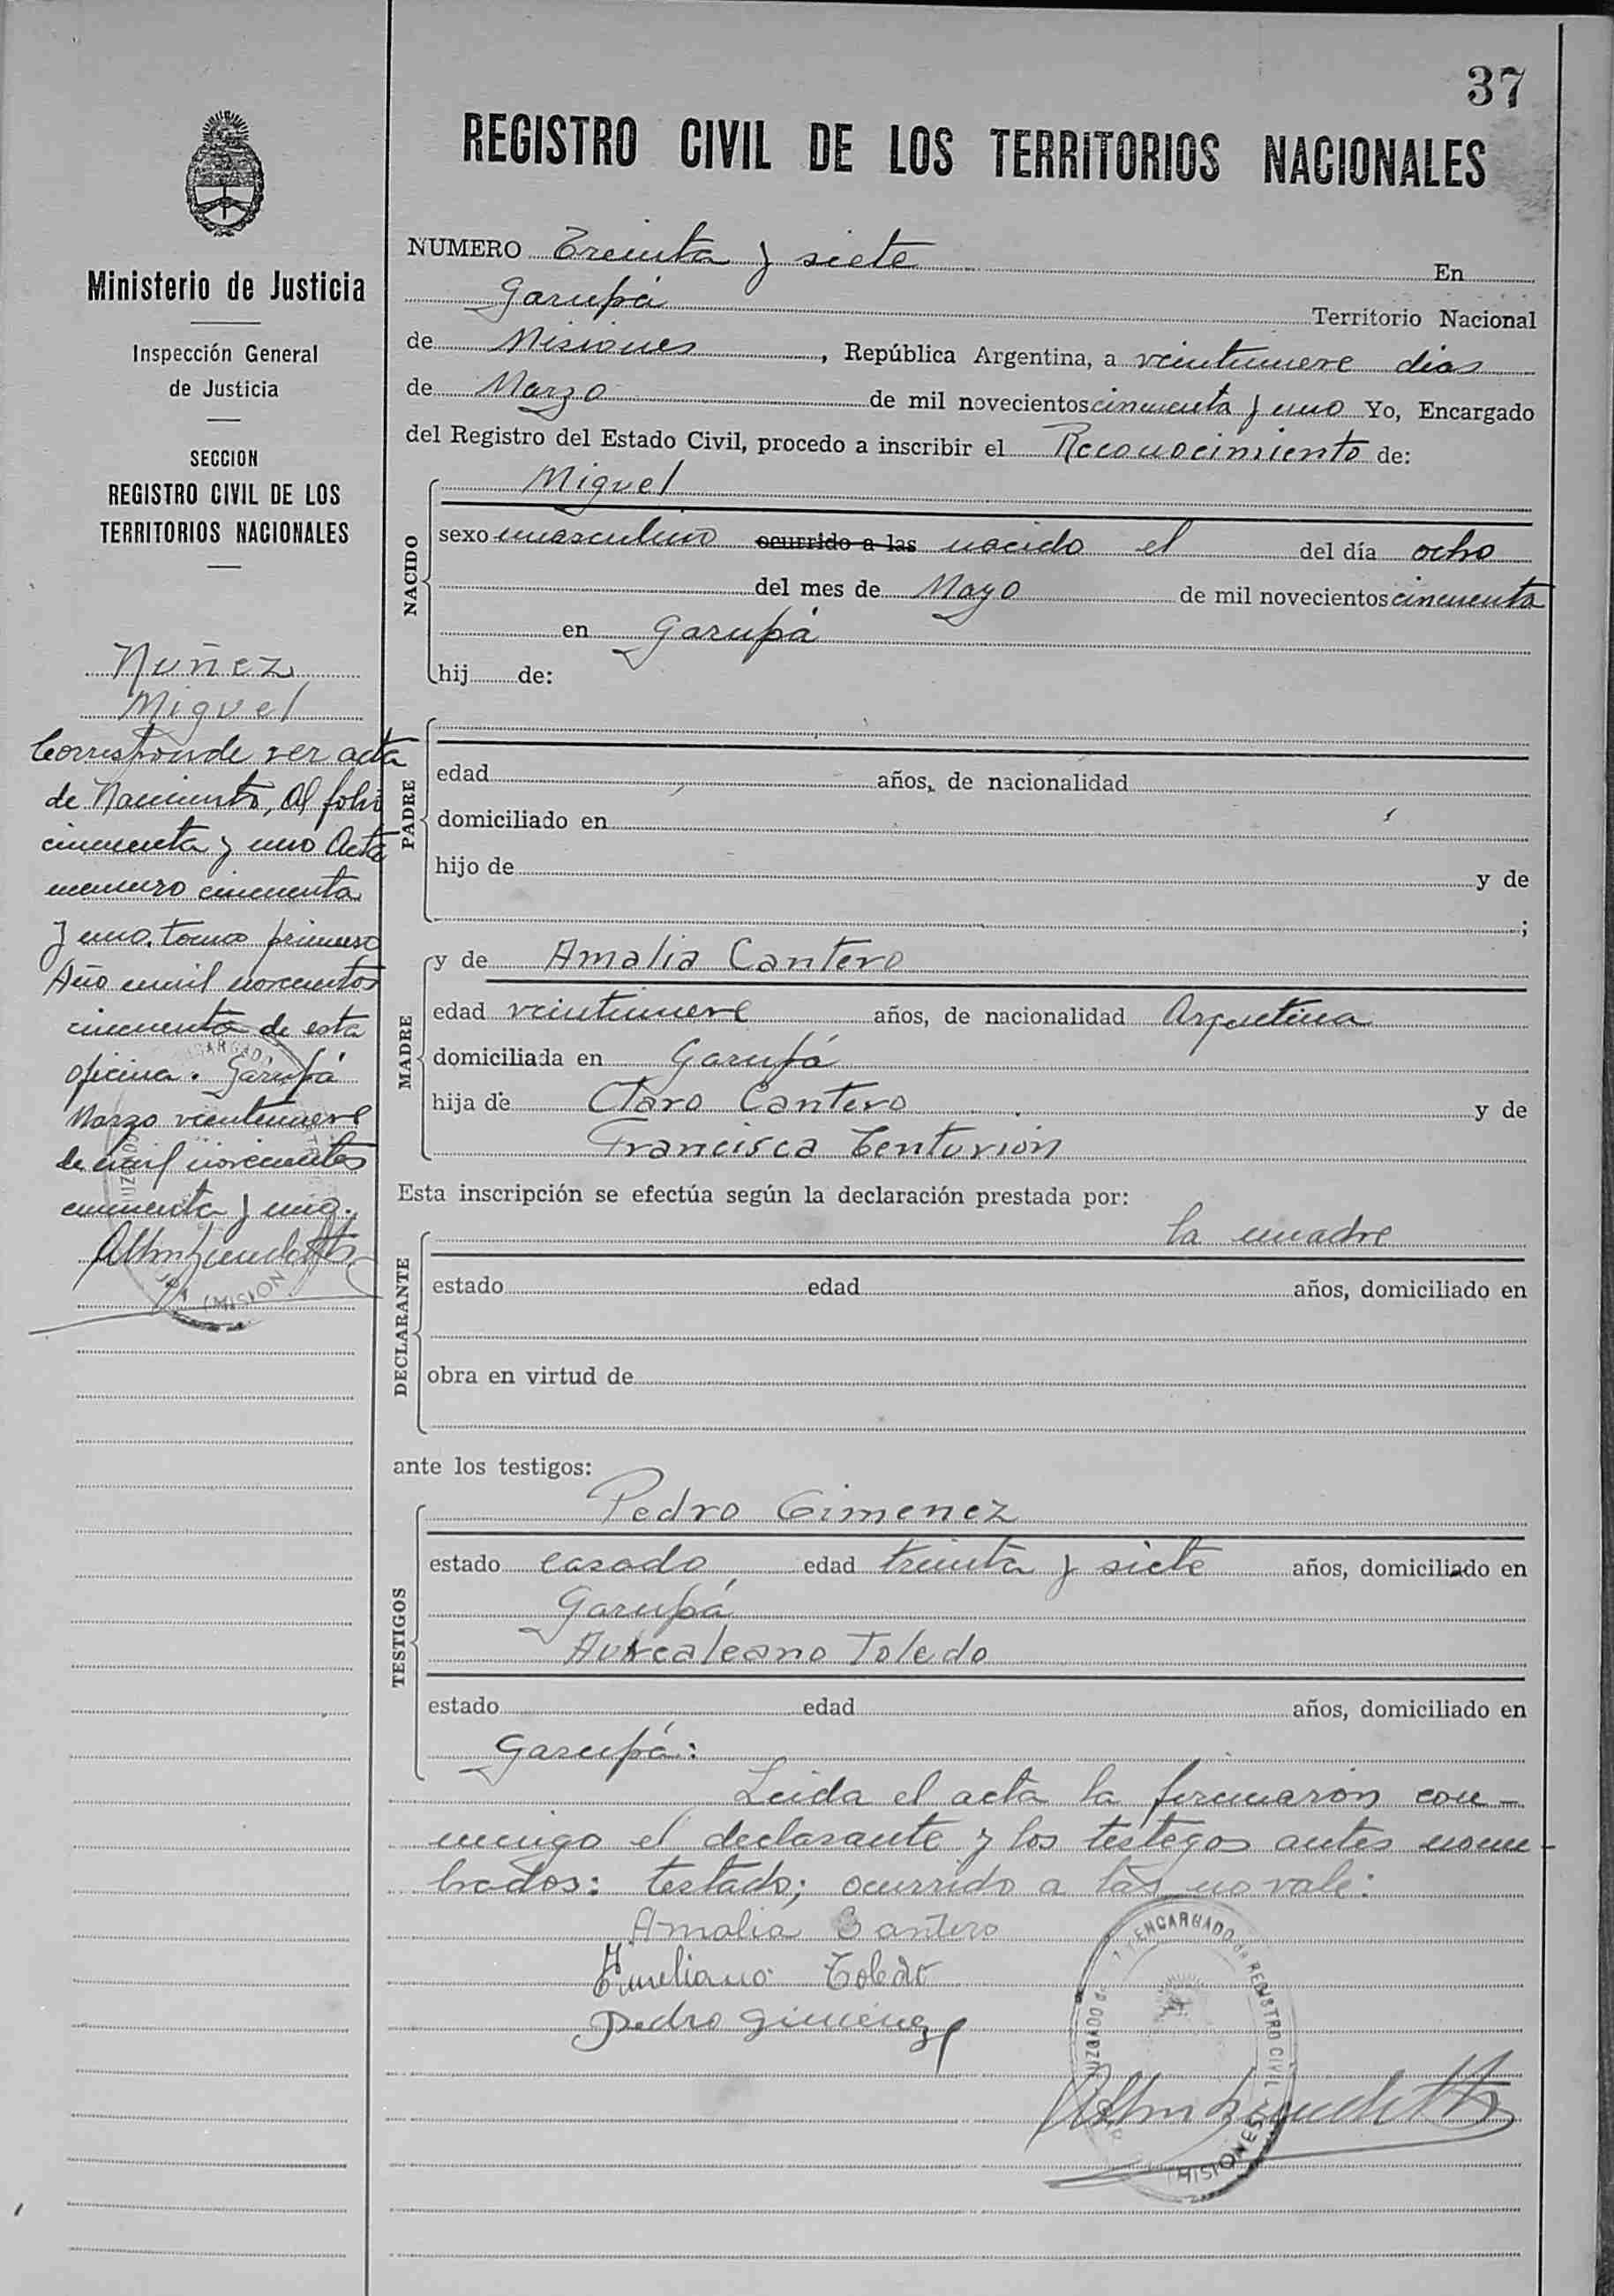 37
REGISTRO CIVIL DE LOS TERRITORIOS NACIONALES
Ministerio de Justicia
Inspección General
de Justicia
SECCION
REGISTRO CIVIL DE LOS
TERRITORIOS NACIONALES
Nuñez
Miguel
Corresponde ver acta
de Nacimiento, Al folio
cincuenta y uno Acta
numero cincuenta
y uno. tomo primero
Año mil novecientos
cincuenta de esta
oficina. Garupá
Marzo veintinueve
de mil novecientos
cincuenta y uno.
NUMERO Treinta y siete En
Garupá Territorio Nacional
de Misiones, República Argentina, a veintinueve dias
de Marzo de mil novecientos cincuenta y uno Yo, Encargado
del Registro del Estado Civil, procedo a inscribir el Reconocimiento de:
NACIDO
Miguel
sexo masculino ocurrido a las nacido el del día ocho
del mes de Mayo de mil novecientos cincuenta
en Garupá
hij de:
PADRE
edad años, de nacionalidad
domiciliado en
hijo de y de
;
MADRE
y de Amalia Cantero
edad veintinueve años, de nacionalidad Argentina
domiciliada en Garupá
hija de Claro Cantero y de
Francisca Centurión
Esta inscripción se efectúa según la declaración prestada por:
DECLARANTE
la madre
estado edad años, domiciliado en
obra en virtud de
ante los testigos:
TESTIGOS
Pedro Gimenez
estado casado edad treinta y siete años, domiciliado en
Garupá
Toledo
estado edad años, domiciliado en
Garupá:
Leida el acta la firmarón con-
migo el declarante y los testegos antes nom-
brados: testado; ocurrido a las no vale:
Amalia Cantero
Toledo
Pedro Gimenez
ENCARGADO del REGISTRO CIVIL
JUZGADO de
MISIONES